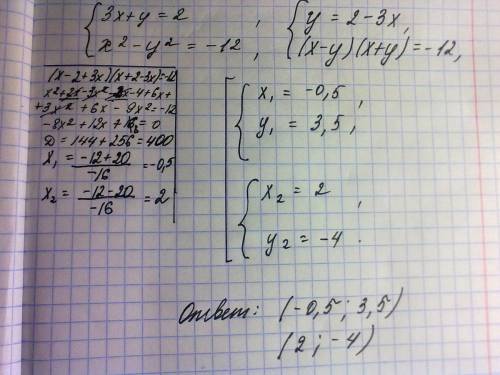 3x+y=2 , y=2-3x,
x²-y²=-12, (x-y)(x+y)=-12,
(x-2+3x)(x+2-3x)=-12
x²+2x-3x²-2x-4+6x+
+3x²+6x-9x²=-12
-8x²+12x+ =0
D=144+256=400
x₁= -12+20 / -16 =-0,5
x₂= -12-20 / -16 =2
x₁=-0,5 ,
y₁=3,5 ,
x₂=2 ,
y₂=-4 .
Ответ: (-0,5; 3,5)
(2; -4)